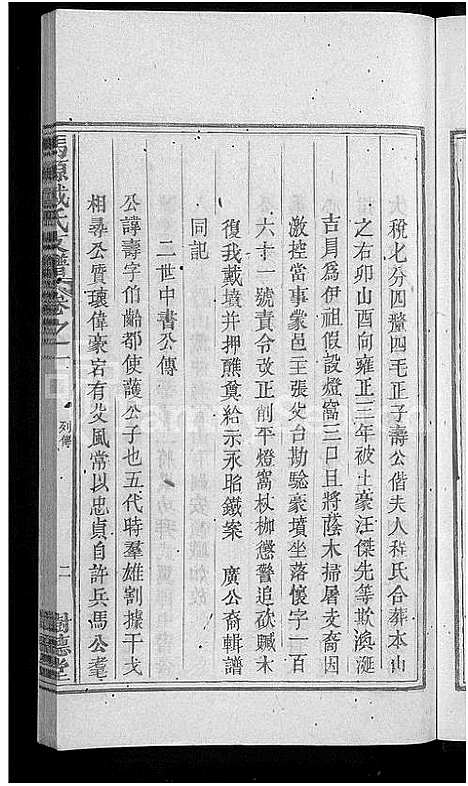 大稅七分四釐四毛正子壽公偕夫人程氏合葬本山
之右卯山酉向雍正三年被土豪汪傑先等欺渙涎
吉冐爲伊祖假設燈窩三口且將蔭木掃屠支裔因
激控當事蒙邑主張父台勘騐豪墳坐落懷字一百
六十一號責令改正削平燈窩杖枷懲警追砍贓木
復我戴墳并押醮奠給示永貽鐵案　廣公裔輯譜
同記
二世中書公傳
公諱壽字伯齡都使護公子也五代時羣雄割據干戈
相尋公質瓌偉豪宕有父風常以忠貞自許兵馬公耄
馬源戴氏支譜卷之一
列傳
二
樹德堂